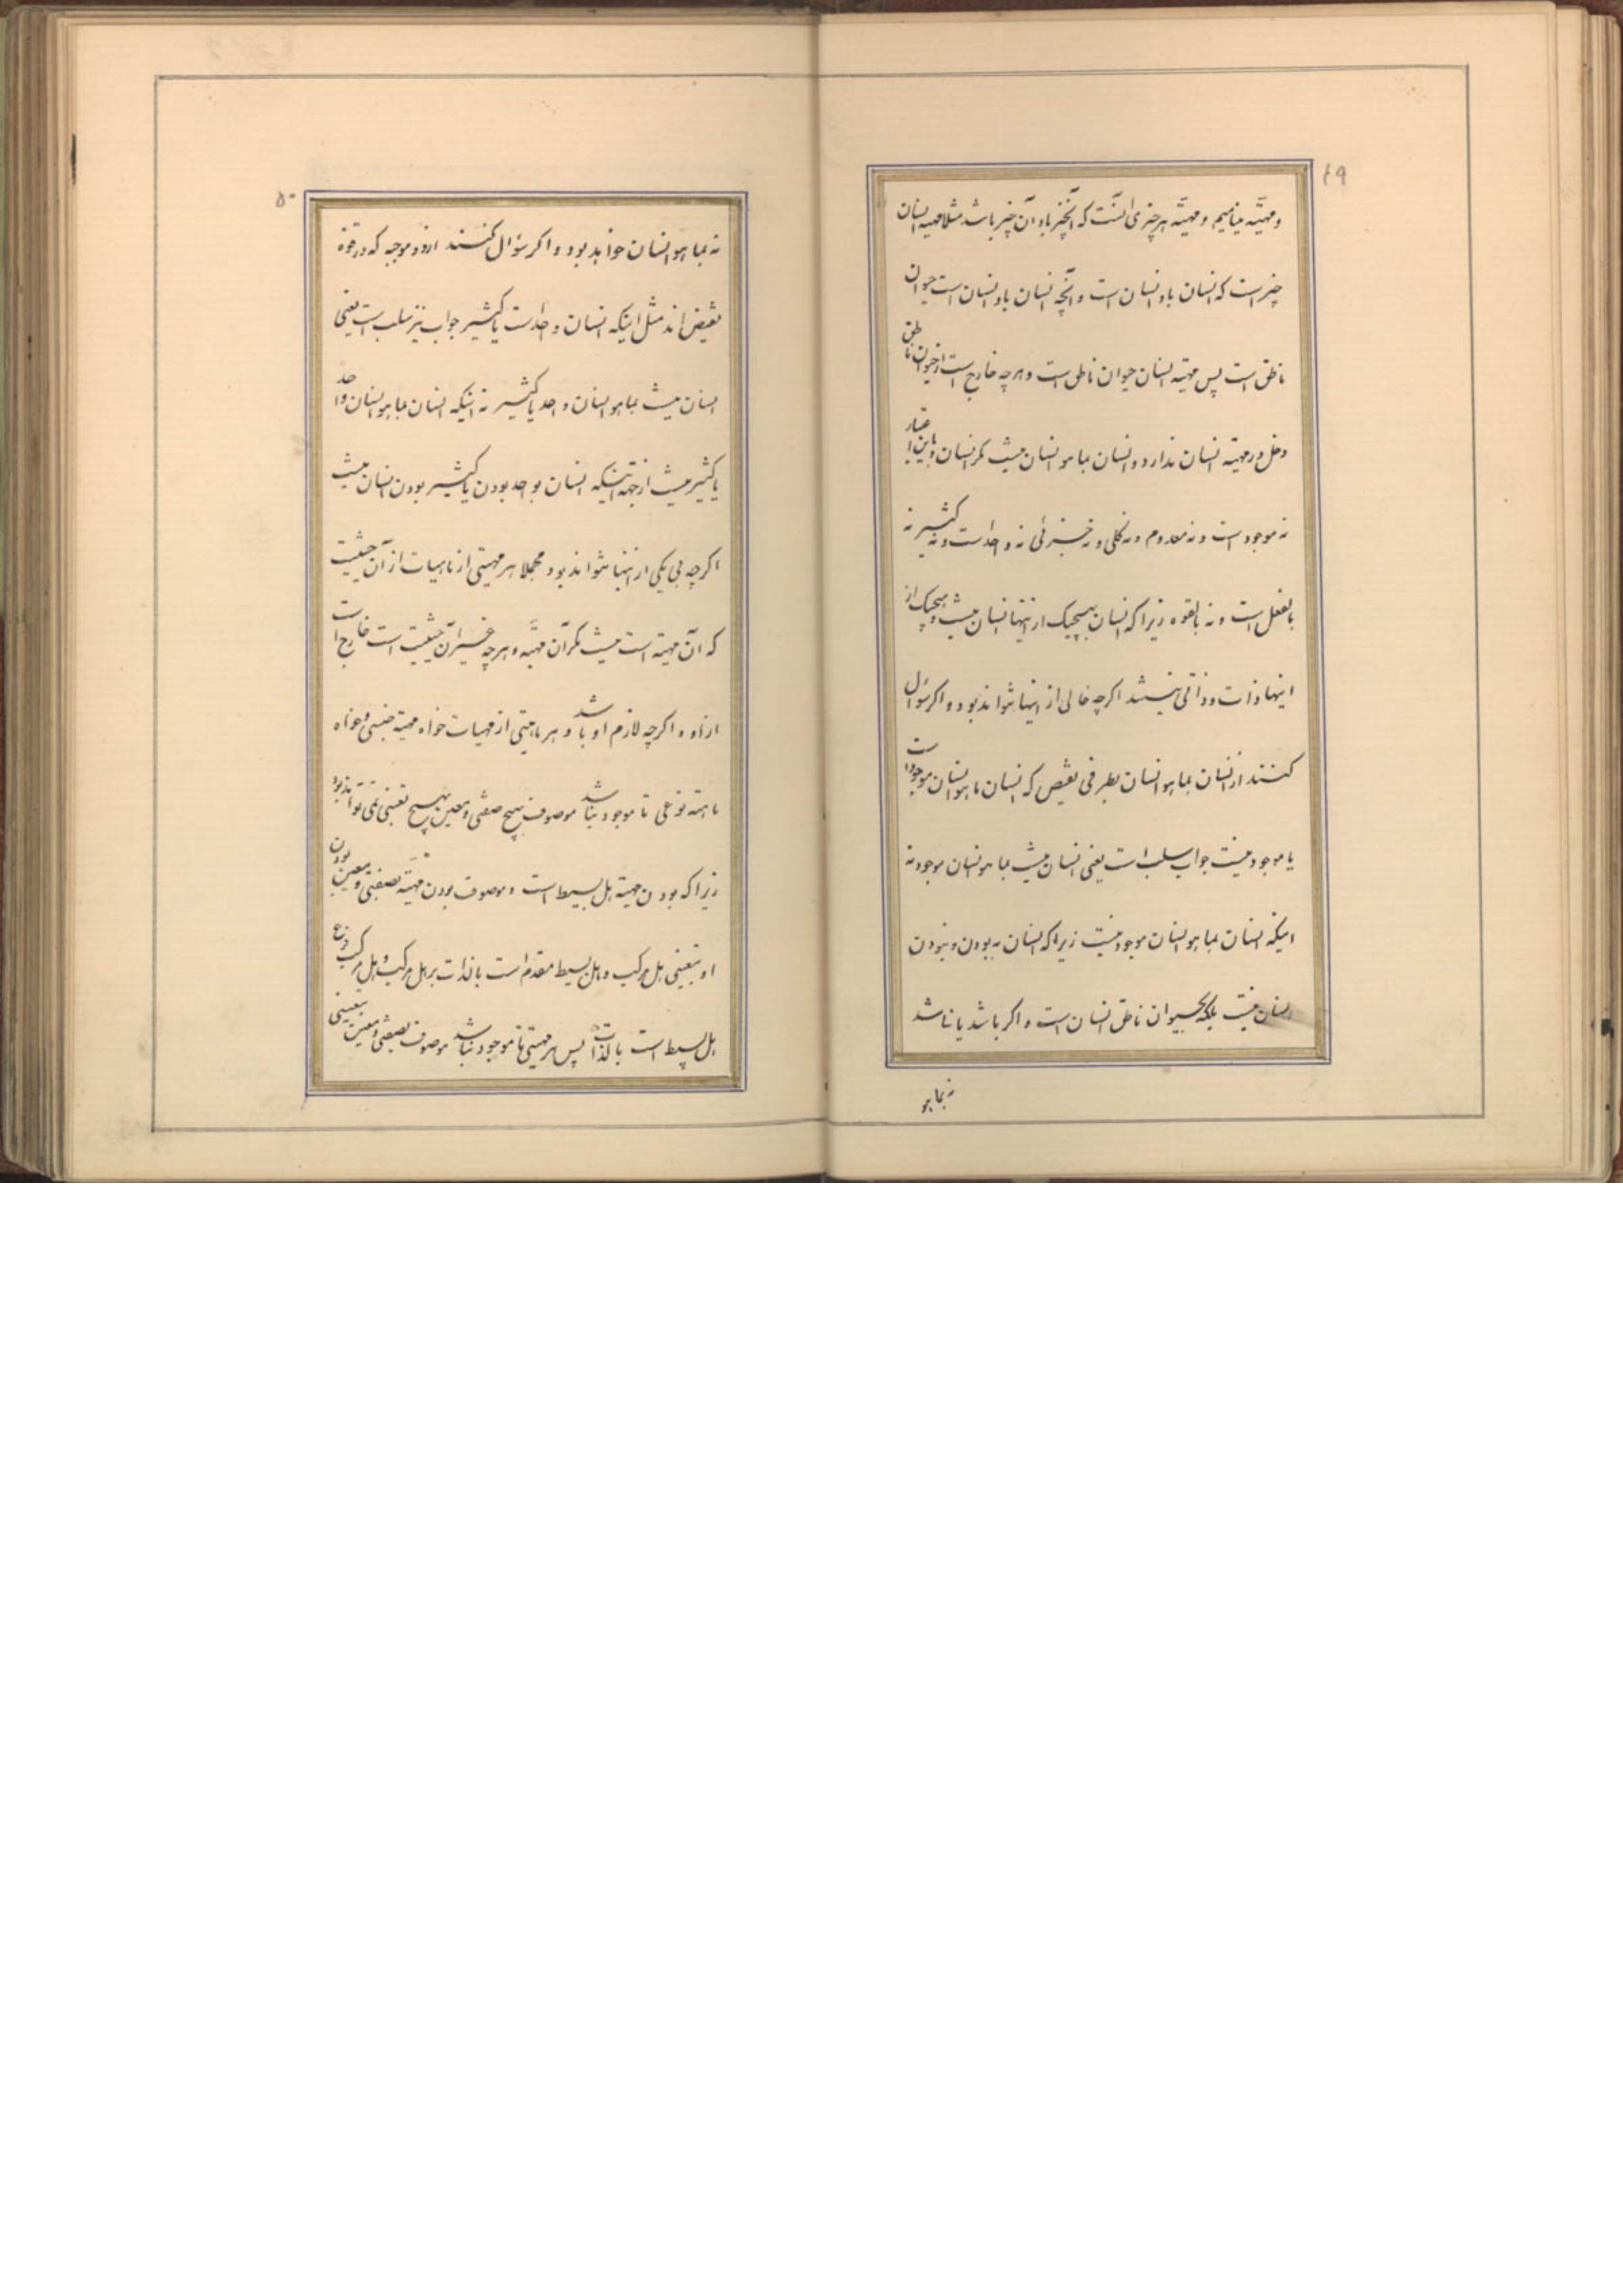 ۴۹
و مهیّه مینامیم و مهیّه هر چیزی آنست که آنچیز باو آن چیز باشد مثلا مهیه انسان
چیزیست که انسان باو انسان است و آنچه انسان باو انسان است حیوان
ناطق است پس مهیّه انسان حیوان ناطق است و هر چه خارج است از حیوان ناطق
دخل در مهیّه انسان ندارد و انسان بما هو انسان نیست مگر انسان و باین اعتبار
نه موجود است و نه معدوم و نه کلی و نه جزئی نه واحد است و نه کثیر نه
بالفعل است و نه بالقوه زیرا که انسان بهیچیک از اینها انسان نیست و هیچیک از
اینها ذات و ذاتی نیستند اگر چه خالی از اینها نتواند بود و اگر سؤال
کنند از انسان بما هو انسان بطرفی نقیض که انسان بما هو انسان موجود است
یا موجود نیست جواب سلب است یعنی انسان نیست بما هو انسان موجود نه
اینکه انسان بما هو انسان موجود نیست زیرا که انسان به بودن و نبودن
انسان نیست بلکه بحیوان ناطق انسان است و اگر باشد یا نباشد
نه بما هو
۵۰
نه بما هو انسان خواهد بود و اگر سؤال کنند از دو موجبه که در قوة
نقیض اند مثل اینکه انسان واحد است یا کثیر جواب نیز سلب است یعنی
انسان نیست بما هو انسان واحد یا کثیر نه اینکه انسان بما هو انسان واحد
یا کثیر نیست از جهة اینکه انسان بواحد بودن یا کثیر بودن انسان نیست
اگر چه بی یکی از اینها نتواند بود و مجملا هر مهیتی از ماهیات از آن حیثیت
که آن مهیّه است نیست مگر آن مهیّه و هر چه غیر آن حیثیت است خارج است
از او و اگر چه لازم او باشد و هر ماهیتی از مهیات خواه مهیّه جنسی و خواه
ماهیّه نوعی تا موجود نباشد موصوف بهیچ صفتی و معین بهیچ تعینی نمی تواند بود
زیرا که بودن مهیّه هل بسیط است و موصوف بودن مهیّه بصفتی و معین بودن
او بتعینی هل مرکب و هل بسیط مقدم است بالذات بر هل مرکب و هل مرکب فرع
هل بسیط است بالذات پس هر مهیتی تا موجود نباشد موصوف بصفتی و معین بتعینی